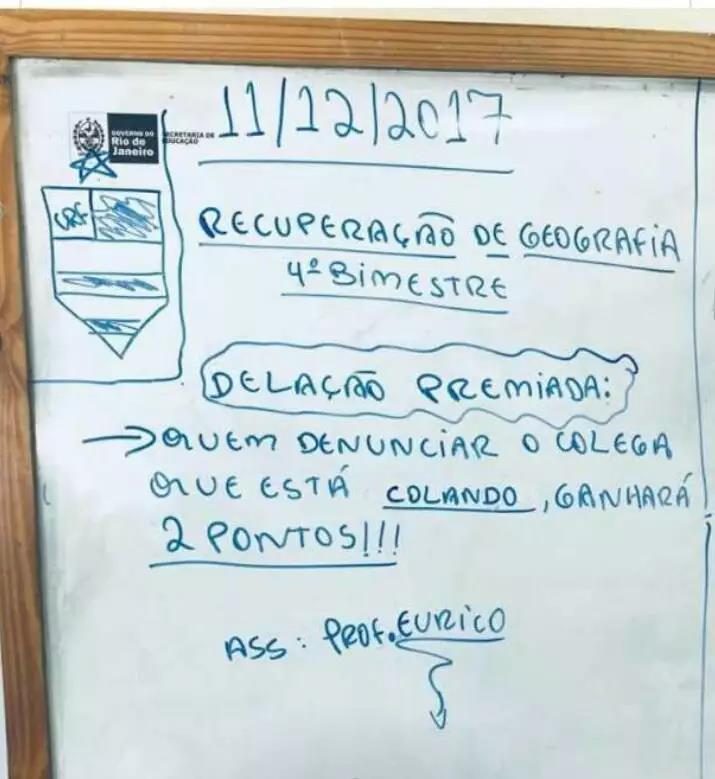 11/12/2017
GOVERNO DO
Rio de
Janeiro
SECRETARIA DE
EDUCAÇÃO
CRF
RECUPERAÇÃO DE GEOGRAFIA
4º BIMESTRE
DELAÇÃO PREMIADA:
→ QUEM DENUNCIAR O COLEGA
QUE ESTÁ COLANDO, GANHARÁ
2 PONTOS!!!
ASS: PROF. EURICO